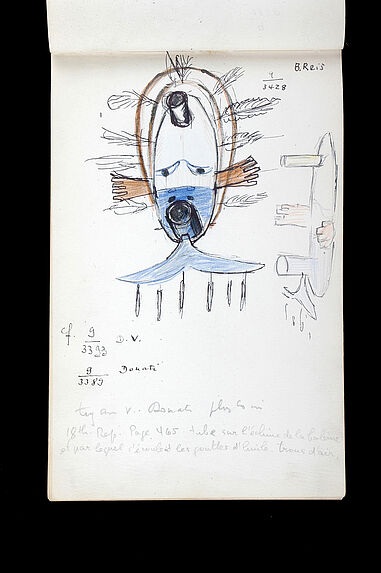 B. Reis
9
3428
cf. 9
3393 D.V.
9
3389 Donati
v. Donati plus
18th Rep. Page 465. tube sur l'échine de la baleine
et par lequel s'écoulent les gouttes d'huile. trous d'air.